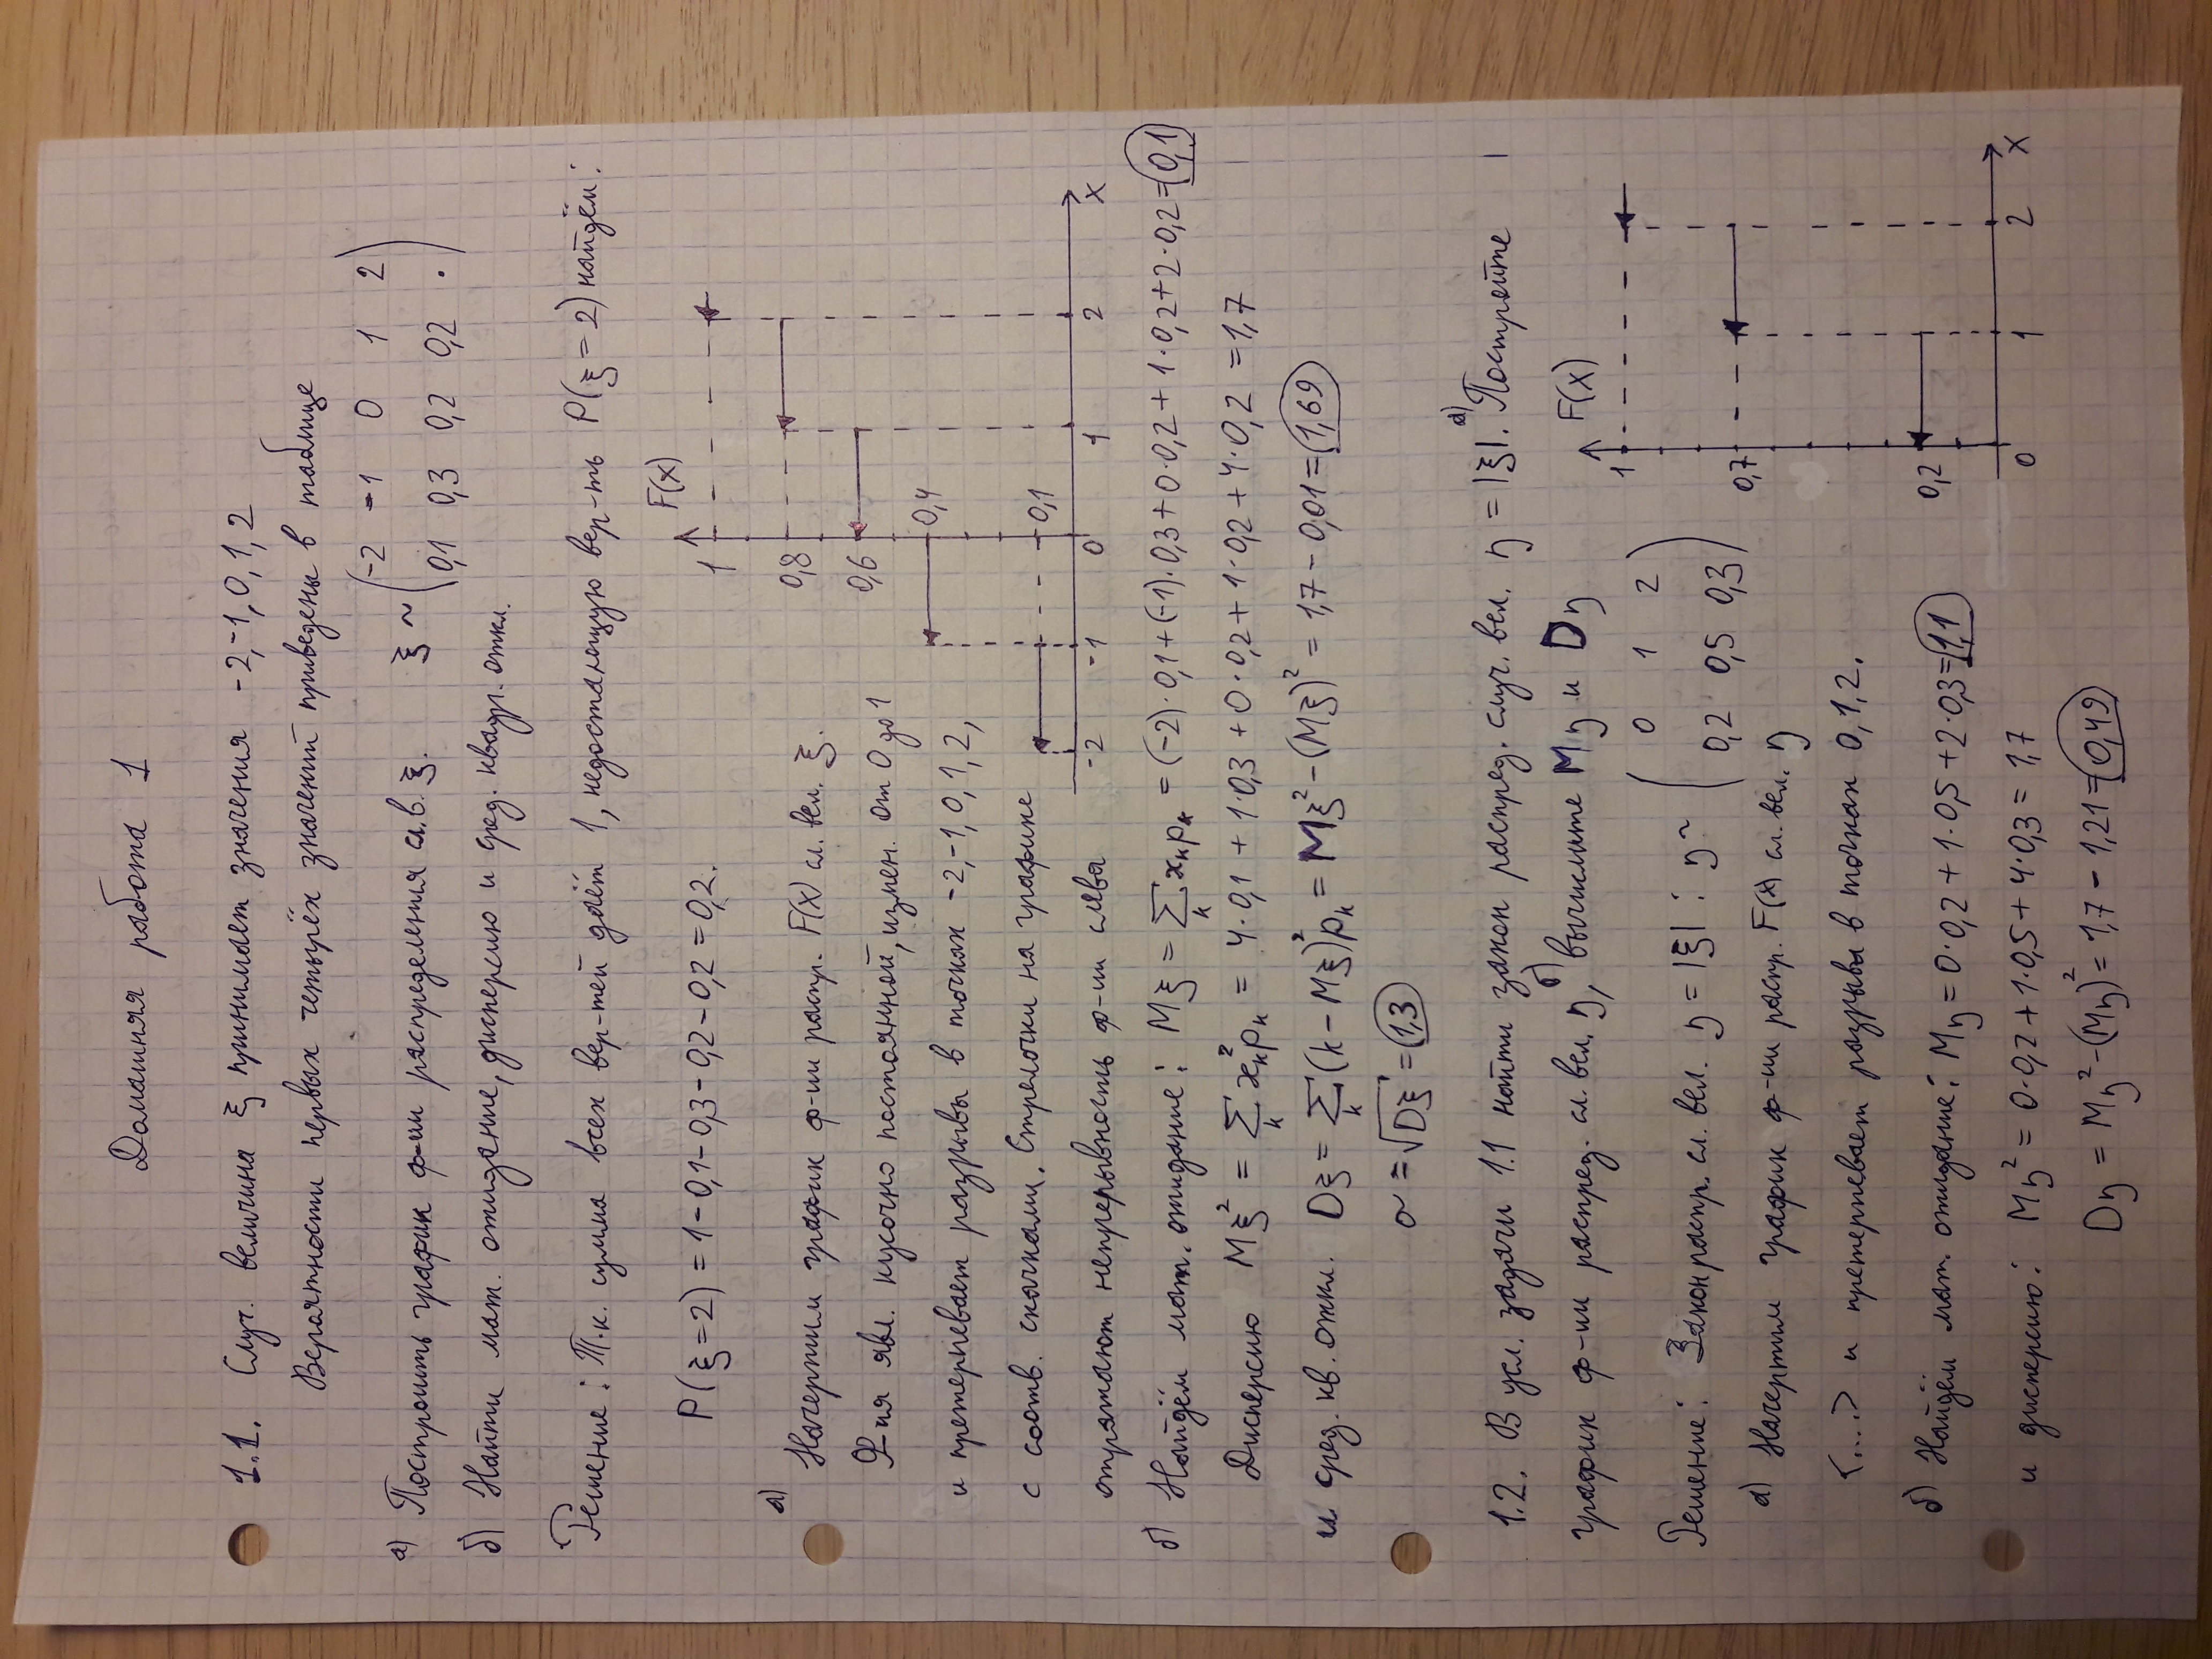 Домашняя работа 1
1.1. Случ. величина ξ принимает значения -2,-1, 0, 1, 2
Вероятности первых четырёх значений приведены в таблице
а) Построить график ф-ии распределения сл.в. ξ. ξ ~ (-2 -1 0 1 2)
(0,1 0,3 0,2 0,2 .)
б) Найти мат. ожидание, дисперсию и сред. квадр. откл.
Решение: Т.к. сумма всех вер-тей даёт 1, недостающую вер-ть P(ξ = 2) найдём:
P(ξ=2) = 1 - 0,1 - 0,3 - 0,2 - 0,2 = 0,2.
а)
Начертим график ф-ии распр. F(x) сл. вел. ξ.
Ф-ия явл. кусочно постоянной, измен. от 0 до 1
и претерпевает разрывы в точках -2,-1, 0, 1, 2,
с соотв. скачками. Стрелочки на графике
отражают непрерывность ф-ии слева
F(x)
1
0,8
0,6
0,4
0,1
-2 -1 0 1 2 x
б) Найдём мат. ожидание: Mξ = ∑ₖ xₖpₖ = (-2)·0,1+(-1)·0,3+0·0,2+1·0,2+2·0,2=0,1
Дисперсию Mξ² = ∑ₖ xₖ²pₖ = 4·0,1 + 1·0,3 + 0·0,2 + 1·0,2 + 4·0,2 = 1,7
и сред. кв. откл. Dξ = ∑ₖ (k - Mξ)²pₖ = Mξ² - (Mξ)² = 1,7 - 0,01 = 1,69
σ = √Dξ = 1,3
1.2. В усл. задачи 1.1 найти закон распред. случ. вел. η = |ξ|. а) Постройте
график ф-ии распред. сл. вел. η, б) вычислите Mη и Dη
Решение: Закон распр. сл. вел. η = |ξ| : η ~ (0 1 2)
(0,2 0,5 0,3)
а) Начертим график ф-ии распр. F(x) сл. вел. η
<....> и претерпевает разрывы в точках 0, 1, 2.
F(x)
1
0,7
0,2
0 1 2 x
б) Найдём мат. ожидание: Mη = 0·0,2 + 1·0,5 + 2·0,3 = 1,1
и дисперсию: Mη² = 0·0,2 + 1·0,5 + 4·0,3 = 1,7
Dη = Mη² - (Mη)² = 1,7 - 1,21 = 0,49